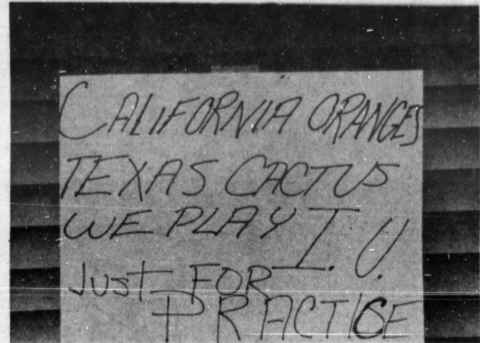 CALIFORNIA ORANGES
TEXAS CACTUS
WE PLAY I.U.
JUST FOR
PRACTICE